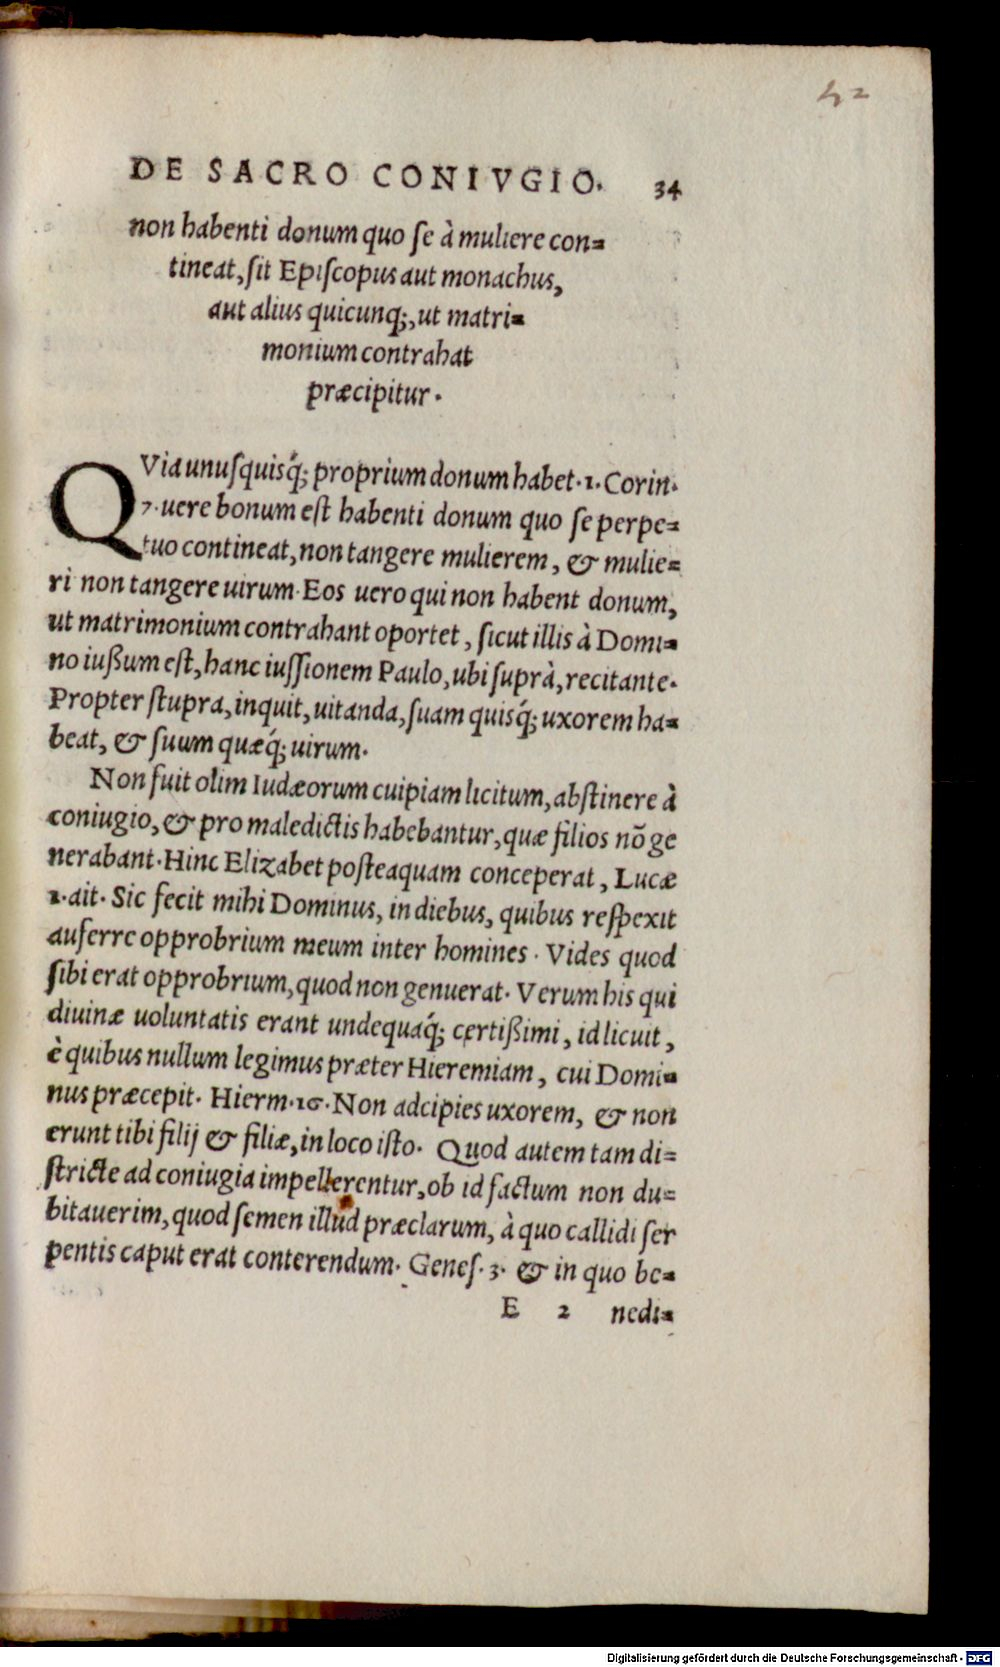 42
DE SACRO CONIVGIO. 34
non habenti donum quo ſe à muliere con=
tineat, ſit Epiſcopus aut monachus,
aut alius quicunq;, ut matri=
monium contrahat
præcipitur.
QVia unuſquisq́; proprium donum habet. 1. Corin.
7. uere bonum eſt habenti donum quo ſe perpe=
tuo contineat, non tangere mulierem, & mulie=
ri non tangere uirum. Eos uero qui non habent donum,
ut matrimonium contrahant oportet, ſicut illis à Domi=
no iußum eſt, hanc iuſſionem Paulo, ubi ſuprà, recitante.
Propter ſtupra, inquit, uitanda, ſuam quisq́; uxorem ha=
beat, & ſuum quæq́; uirum.
Non fuit olim Iudæorum cuipiam licitum, abſtinere à
coniugio, & pro maledictis habebantur, quæ filios nõ ge
nerabant. Hinc Elizabet poſteaquam conceperat, Lucæ
1. ait. Sic fecit mihi Dominus, in diebus, quibus reſpexit
auferre opprobrium meum inter homines. Vides quod
ſibi erat opprobrium, quod non genuerat. Verum his qui
diuinæ uoluntatis erant undequaq́; certißimi, id licuit,
è quibus nullum legimus præter Hieremiam, cui Domi=
nus præcepit. Hierm. 16. Non adcipies uxorem, & non
erunt tibi filij & filiæ, in loco iſto. Quod autem tam di=
ſtricte ad coniugia impellerentur, ob id factum non du=
bitauerim, quod ſemen illud præclarum, à quo callidi ſer
pentis caput erat conterendum. Geneſ. 3. & in quo be=
E 2 nedi=
Digitalisierung gefördert durch die Deutsche Forschungsgemeinschaft - DFG